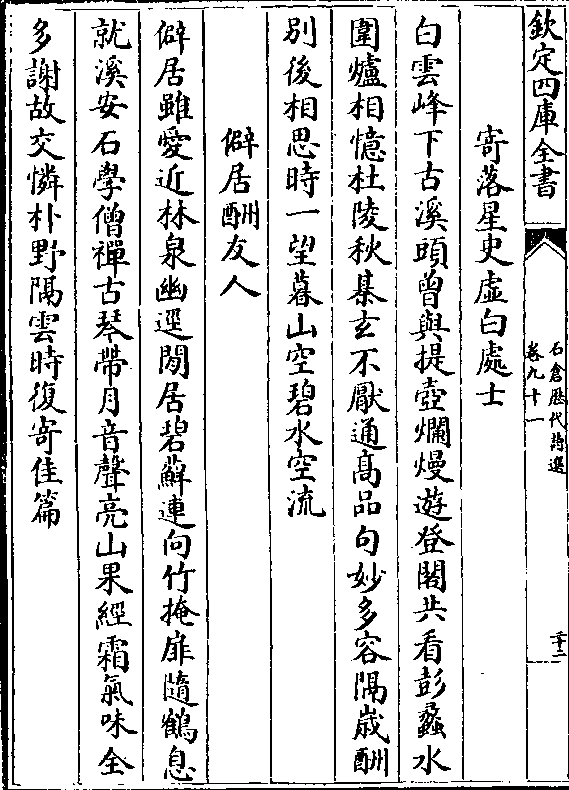 欽定四庫全書
石倉歷代詩選
卷九十一
三十二
寄落星史虛白處士
白雲峰下古溪頭曾與提壺爛熳遊登閣共看彭蠡水
圍爐相憶杜陵秋棊玄不厭通髙品句妙多容隔歲酬
別後相思時一望暮山空碧水空流
僻居酬友人
僻居雖愛近林泉幽逕閒居碧蘚連向竹掩扉隨鶴息
就溪安石學僧禪古琴帶月音聲亮山果經霜氣味全
多謝故交憐朴野隔雲時復寄佳篇